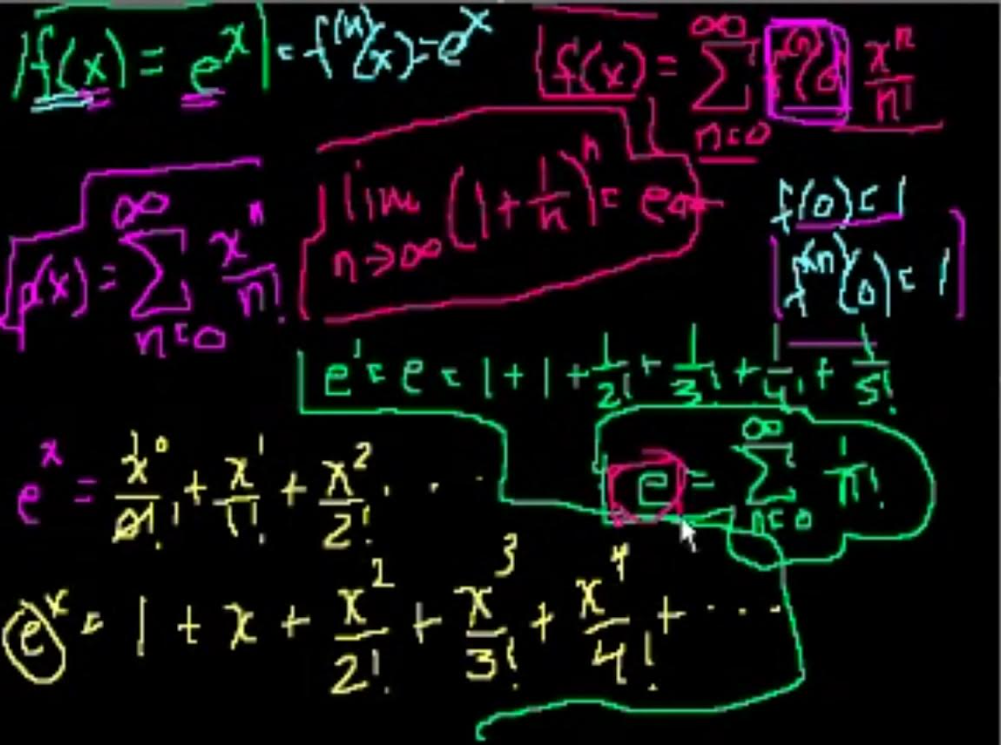 f(x) = e^x = f^(n)(x) = e^x
f(x) = ∑_{n=0}^{∞} f^(n)(0) x^n/n!
p(x) = ∑_{n=0}^{∞} x^n/n!
lim_{n→∞} (1 + 1/n)^n = e
f(0) = 1
f^(n)(0) = 1
e^1 = e = 1 + 1 + 1/2! + 1/3! + 1/4! + 1/5!
e^x = x^0/0! + x^1/1! + x^2/2! . . . .
e = ∑_{n=0}^{∞} 1/n!
e^x = 1 + x + x^2/2! + x^3/3! + x^4/4! + ....